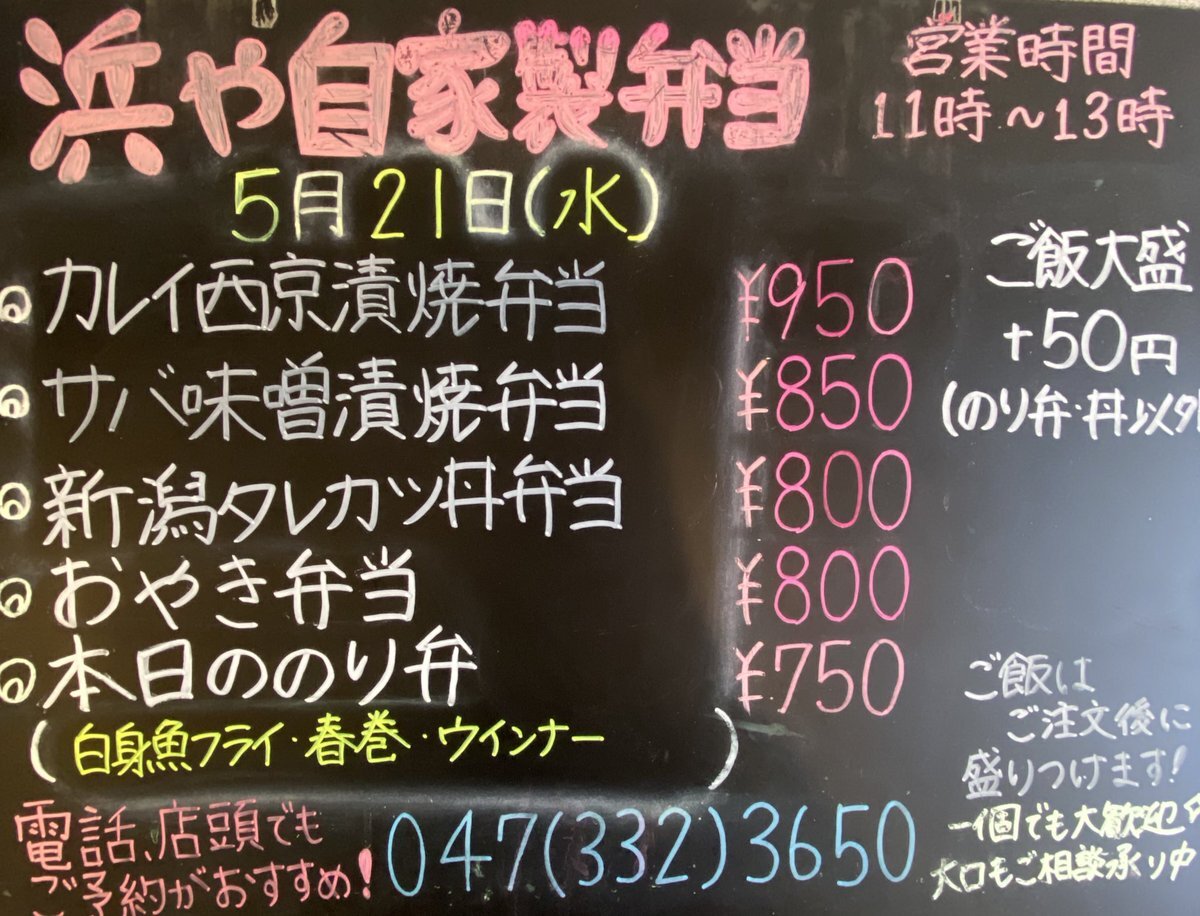 浜や自家製弁当
営業時間
11時～13時
5月21日(水)
カレイ西京漬焼弁当 ¥950
サバ味噌漬焼弁当 ¥850
新潟タレカツ丼弁当 ¥800
おやき弁当 ¥800
本日ののり弁 ¥750
(白身魚フライ・春巻・ウインナー)
ご飯大盛
+50円
(のり弁・丼以外
ご飯は
ご注文後に
盛りつけます!
電話、店頭でも
ご予約がおすすめ!
047(332)3650
一個でも大歓迎
大口もご相談承り中